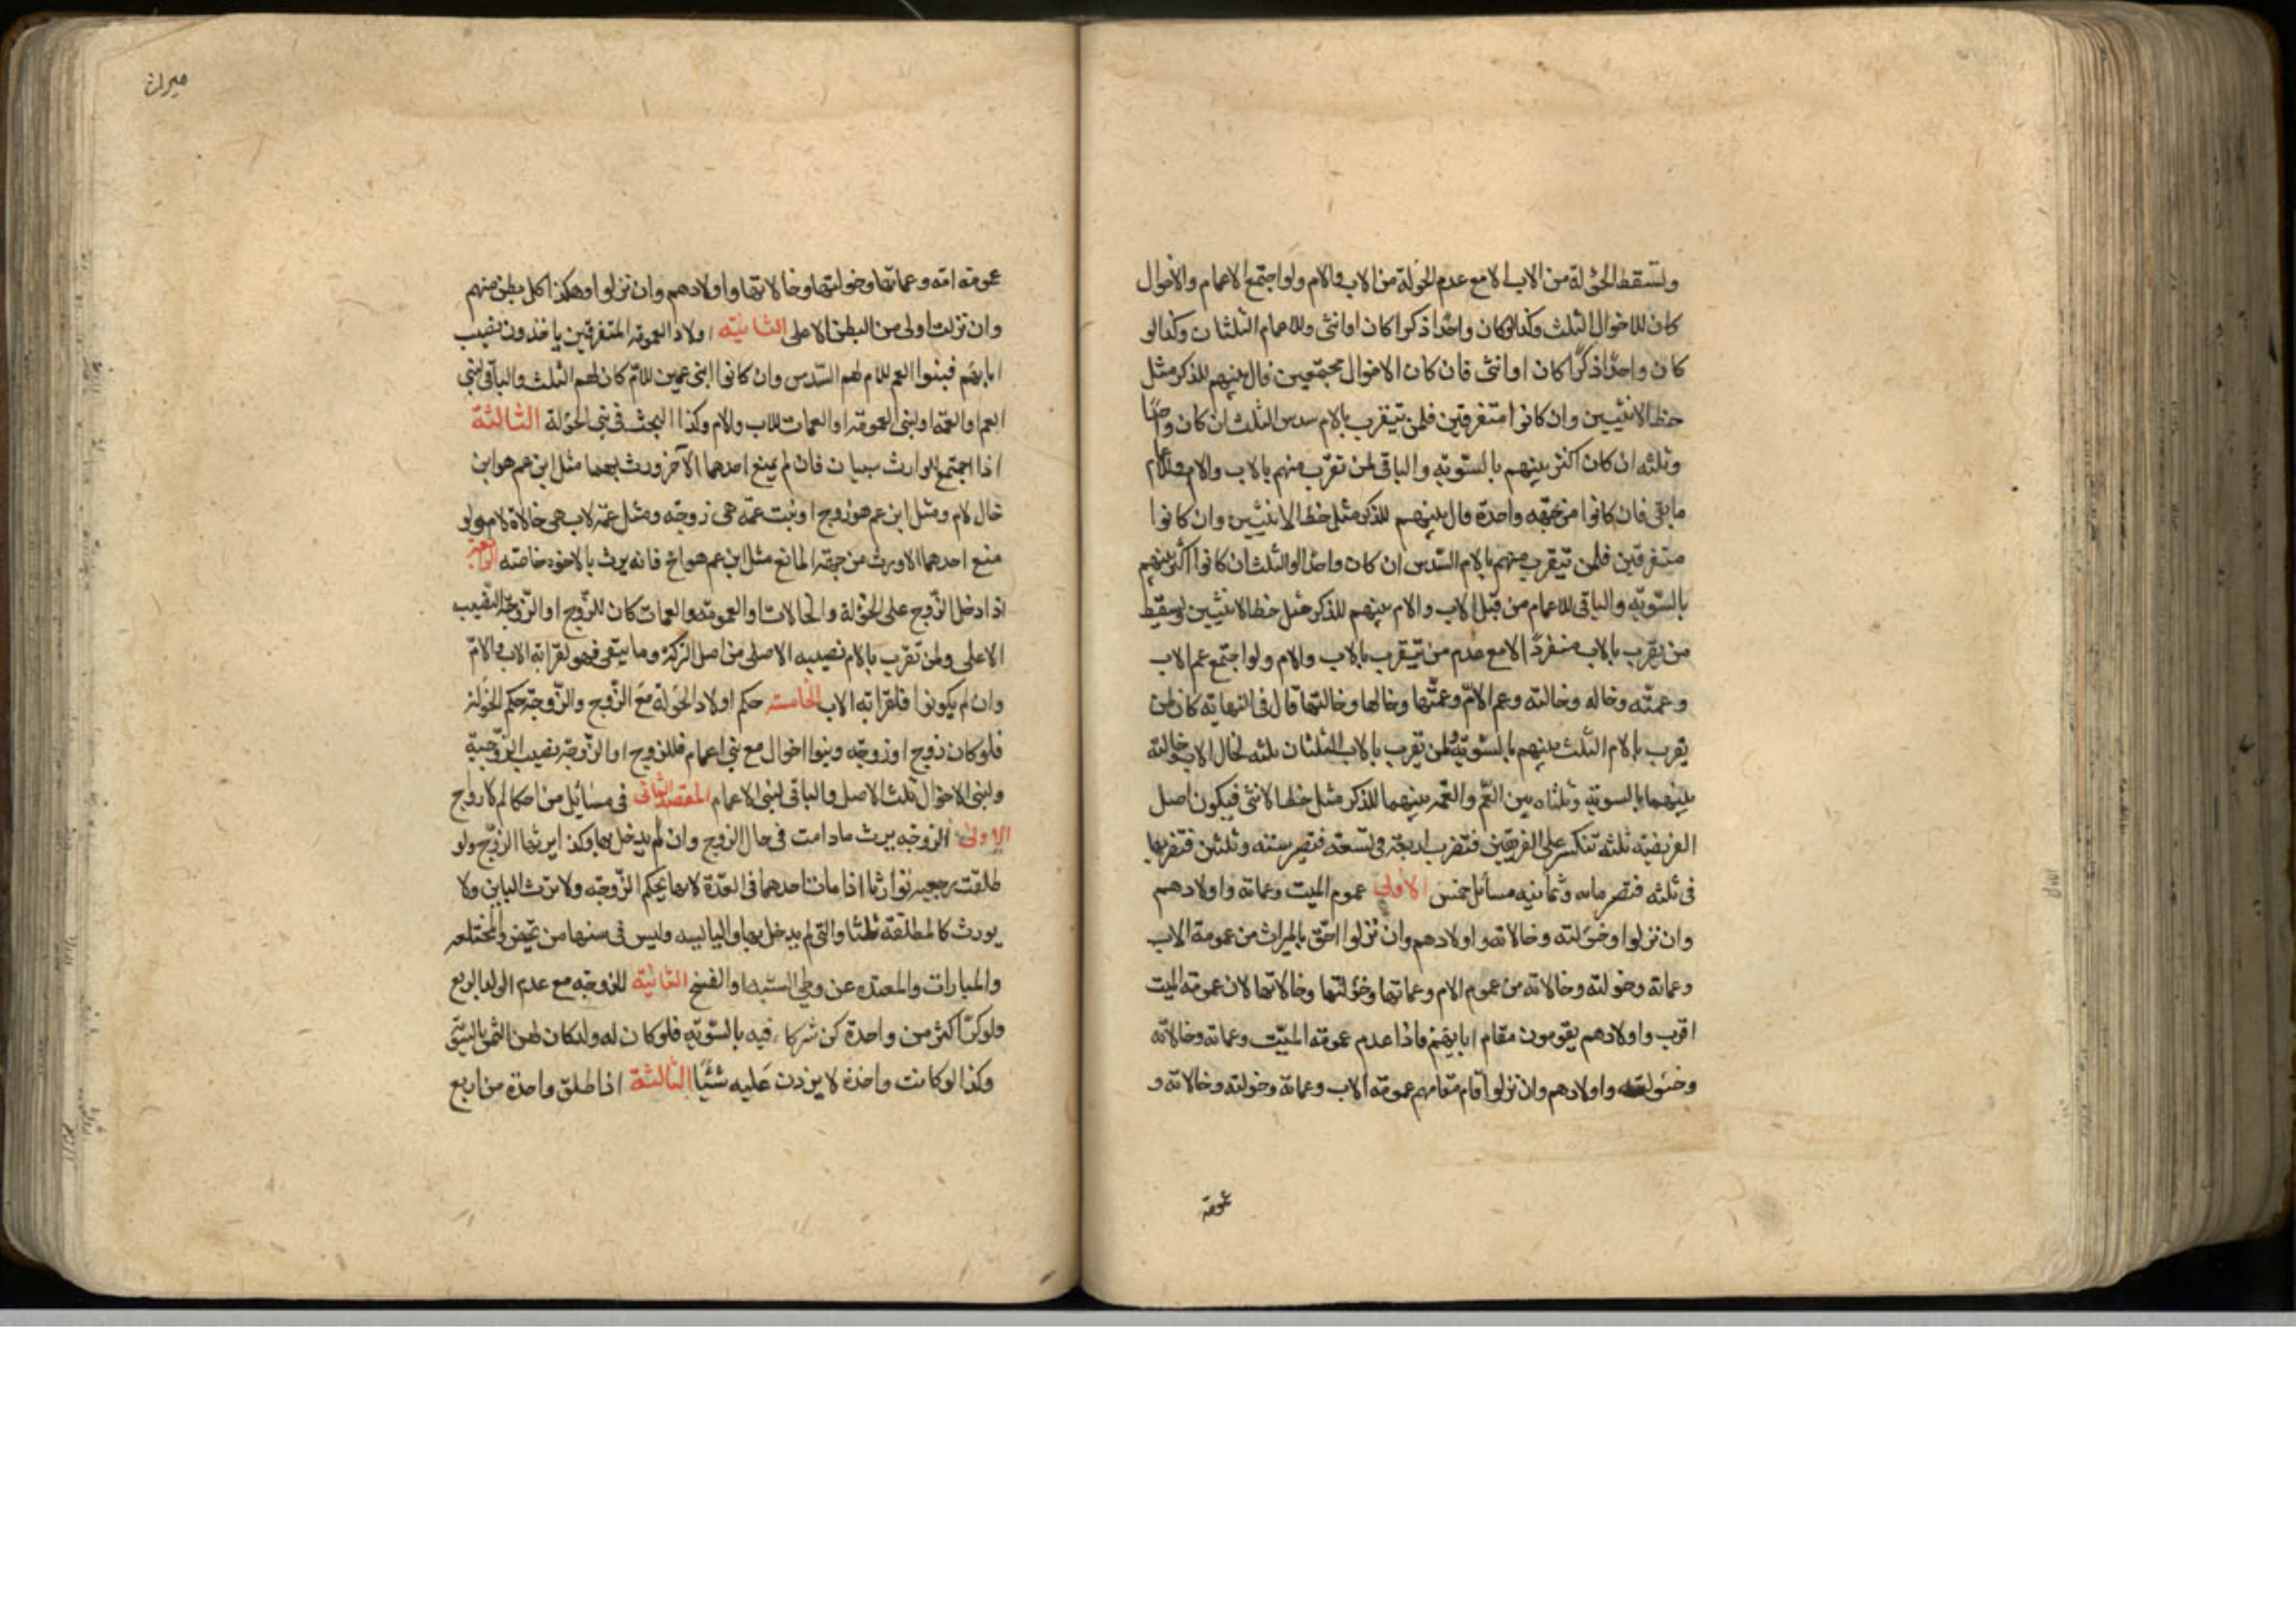 وتسقط الخؤلة من الاب الا مع عدم الخؤلة من الاب والام ولو اجتمع الاعمام والاخوال
كان للاخوال الثلث وكذا لوكان واحدا ذكرا كان او انثى وللاعمام الثلثان وكذا لو
كان واحدا ذكرًا كان او انثى فان كان الاخوال مجتمعين فالمال بينهم للذكر مثل
حظ الانثيين وان كانوا متفرقين فلمن يتقرب بالام سدس الثلث ان كان واحدًا
وثلثه ان كان اكثر بينهم بالسّويّه والباقى لمن تقرّب منهم بالاب والام وللاعمام
ما بقى فان كانوا من جهة واحدة فالمال بينهم للذكر مثل حظ الانثيين وان كانوا
متفرقين فلمن يتقرب منهم بالام السّدس ان كان واحدا والثلث ان كانوا اكثر بينهم
بالسّويّه والباقى للاعمام من قبل الاب والام بينهم للذكر مثل حظ الانثيين ويسقط
من يتقرب بالاب منفردًا الا مع عدم من يتقرب بالاب والام ولو اجتمع عم الاب
وعمّته وخاله وخالته وعم الامّ وعمّتها وخالها وخالتها قال فى النهاية كان لمن
يقرب بالام الثلث بينهم بالسّويّة ولمن يقرب بالاب الثلثان ثلثه لخال الاب وخالته
بينهما بالسوية وثلثاه بين العمّ والعمّه بينهما للذكر مثل حظ الانثى فيكون اصل
الفريضة ثلثة تنكسر على الفريقين فتضرب اربعة فى تسعة فتصير ستة وثلثين فتضربها
فى ثلثه فتصير مايه وثمانيه مسائل خمس الاولى عموم الميت وعماته واولادهم
وان نزلوا وخئولته وخالاته واولادهم وان نزلوا احقّ بالميراث من عمومة الاب
وعماته وخولته وخالاته من عموم الام وعماتها وخؤلتها وخالاتها لان عمومة الميت
اقرب واولادهم يقومون مقام ابايهم فاذا عدم عمومة الميّت وعماته وخالاته
وخئولته واولادهم وان نزلوا قام مقامهم عمومة الاب وعماته وخولته وخالاته و
عمومة
ميراث
عمومة امّه وعماتها وخولتها وخالاتها واولادهم وان نزلوا وهكذا كل بطن منهم
وان نزلت اولى من البطن الاعلى الثانيه اولاد العمومة المتفرقين ياخذون نصيب
ابايهم فبنوا العم للام لهم السّدس وان كانوا ابنى عمين للامّ كان لهم الثلث والباقى لبنى
العم والعمة او لبنى العمومة او العمات للاب والام وكذا البحث فى بنى الخؤلة الثالثة
اذا اجتمع للوارث سببان فان لم يمنع احدهما الآخر ورث بهما مثل ابن عم هو ابن
خال لام ومثل ابن عم هو زوج او بنت عمّة هى زوجه ومثل عمّة لاب هى خالة لام ولو
منع احدهما الاخر ورث من جهة المانع مثل ابن عم هو اخ فانه يرث بالاخوه خاصّه الرابعة
اذا دخل الزّوج على الخئولة والخالات او العمومة والعمات كان للزّوج او الزّوجة النصيب
الاعلى ولمن تقرّب بالام نصيبه الاصلى من اصل التركة وما يبقى فهو لقرابة الاب والامّ
وان لم يكونوا فلقرابة الاب الخامسة حكم اولاد الخولة مع الزّوج والزّوجة حكم الخؤلة
فلو كان زوج او زوجه وبنوا اخوال مع بنى اعمام فللزوج او الزّوجة نصيب الزّوجية
ولبنى الاخوال ثلث الاصل والباقى لبنى الاعمام المقصد الثانى فى مسائل من احكام الازواج
الاولى الزوجه يرث مادامت فى حال الزوج وان لم يدخل بها وكذا يرثها الزّوج ولو
طلقت رجعية توارثا اذا مات احدهما فى العدّة لانها بحكم الزّوجه ولا ترث البائن ولا
يورث كالمطلقة ثلثا والتى لم يدخل بها واليايسه وليس فى سنها من تحيض والمختلعه
والمبارات والمعتده عن وطى الشبهة او الفسخ الثانية للزوجه مع عدم الولد الربع
ولو كنّ اكثر من واحدة كن شركاء فيه بالسّويّه فلو كان له ولد كان لهن الثمن بالسّويّة
وكذا لو كانت واحدة لا يزدن عَليه شئيًا الثالثة اذا طلق واحدة من اربع